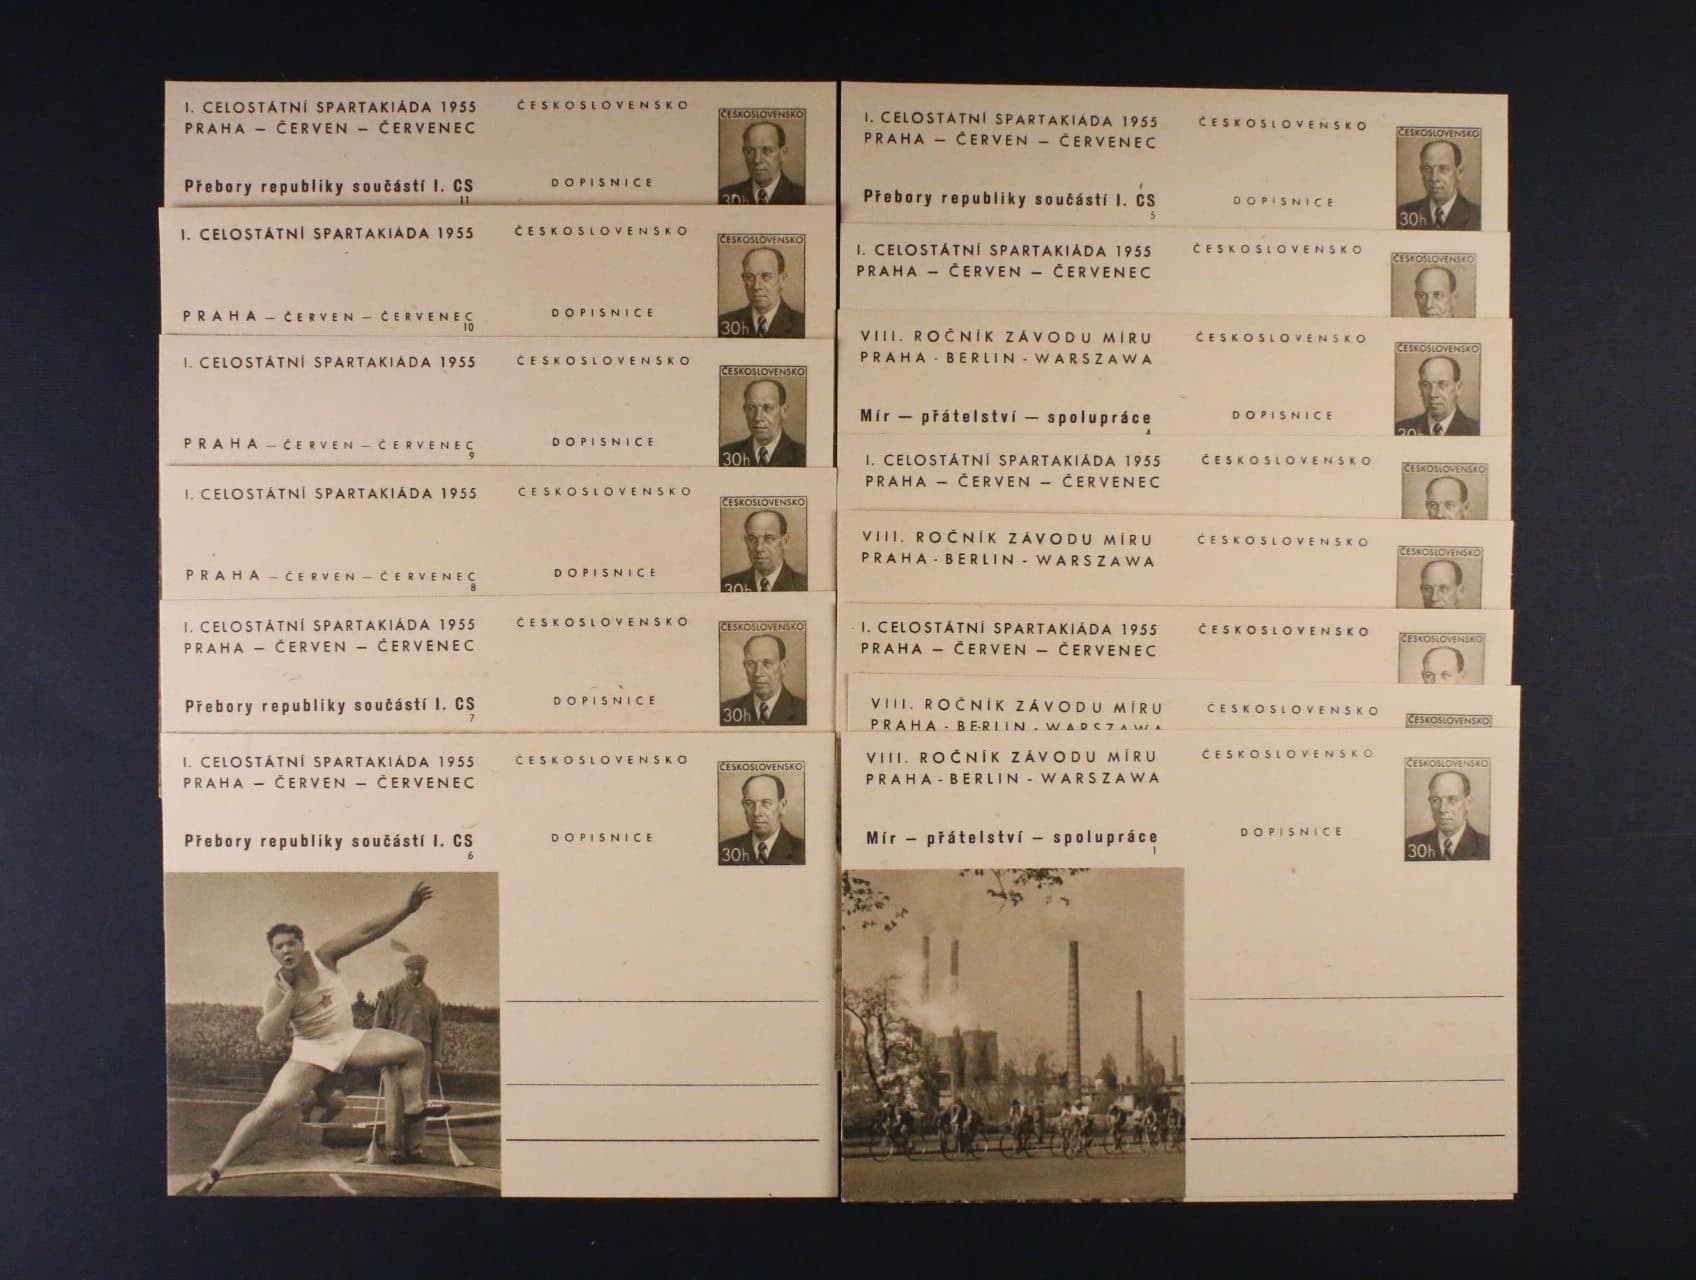 I. CELOSTÁTNÍ SPARTAKIÁDA 1955
PRAHA – ČERVEN – ČERVENEC
Přebory republiky součástí I. CS
11
ČESKOSLOVENSKO
DOPISNICE
ČESKOSLOVENSKO
30h
I. CELOSTÁTNÍ SPARTAKIÁDA 1955
PRAHA – ČERVEN – ČERVENEC
10
ČESKOSLOVENSKO
DOPISNICE
ČESKOSLOVENSKO
30h
I. CELOSTÁTNÍ SPARTAKIÁDA 1955
PRAHA – ČERVEN – ČERVENEC
9
ČESKOSLOVENSKO
DOPISNICE
ČESKOSLOVENSKO
30h
I. CELOSTÁTNÍ SPARTAKIÁDA 1955
PRAHA – ČERVEN – ČERVENEC
8
ČESKOSLOVENSKO
DOPISNICE
ČESKOSLOVENSKO
30h
I. CELOSTÁTNÍ SPARTAKIÁDA 1955
PRAHA – ČERVEN – ČERVENEC
Přebory republiky součástí I. CS
7
ČESKOSLOVENSKO
DOPISNICE
ČESKOSLOVENSKO
30h
I. CELOSTÁTNÍ SPARTAKIÁDA 1955
PRAHA – ČERVEN – ČERVENEC
Přebory republiky součástí I. CS
6
ČESKOSLOVENSKO
DOPISNICE
ČESKOSLOVENSKO
30h
I. CELOSTÁTNÍ SPARTAKIÁDA 1955
PRAHA – ČERVEN – ČERVENEC
Přebory republiky součástí I. CS
5
ČESKOSLOVENSKO
DOPISNICE
ČESKOSLOVENSKO
30h
I. CELOSTÁTNÍ SPARTAKIÁDA 1955
PRAHA – ČERVEN – ČERVENEC
ČESKOSLOVENSKO
ČESKOSLOVENSKO
VIII. ROČNÍK ZÁVODU MÍRU
PRAHA - BERLIN - WARSZAWA
Mír – přátelství – spolupráce
4
ČESKOSLOVENSKO
DOPISNICE
ČESKOSLOVENSKO
30h
I. CELOSTÁTNÍ SPARTAKIÁDA 1955
PRAHA – ČERVEN – ČERVENEC
ČESKOSLOVENSKO
ČESKOSLOVENSKO
VIII. ROČNÍK ZÁVODU MÍRU
PRAHA - BERLIN - WARSZAWA
ČESKOSLOVENSKO
ČESKOSLOVENSKO
I. CELOSTÁTNÍ SPARTAKIÁDA 1955
PRAHA – ČERVEN – ČERVENEC
ČESKOSLOVENSKO
ČESKOSLOVENSKO
VIII. ROČNÍK ZÁVODU MÍRU
PRAHA - BERLIN - WARSZAWA
ČESKOSLOVENSKO
ČESKOSLOVENSKO
VIII. ROČNÍK ZÁVODU MÍRU
PRAHA - BERLIN - WARSZAWA
Mír – přátelství – spolupráce
1
ČESKOSLOVENSKO
DOPISNICE
ČESKOSLOVENSKO
30h